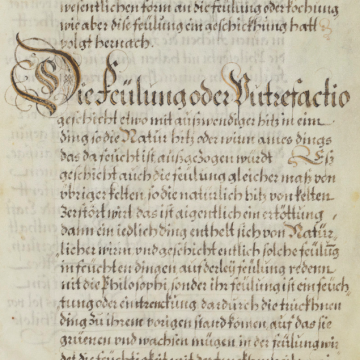 wesentlichen form an die feülung oder kochung
wie aber dise feülung ein geschickhung hatt
volgt hernach.
Die Feülung oder Putrefactio
geschicht etwo mit auswendiger hitz in eim
ding so die Natür hitz oder wirm aines dings
das da feücht ist ausgezogen würdt Es
geschicht auch die feülung gleicher maß von
vbriger kelten, so die natürlich hitz von kelten
zerstört wirt das ist aigentlich ein ertöttung,
dann ein iedlich ding enthelt sich von Natür,
licher wirm vnd geschicht entlich solche feülung
in feüchten dingen auf der ley feülung reden
nit die Philosophi, sonder ihr feülung ist ein feüch,
tung oder eintrenckung dardurch die trückhnen
ding zu ihrem vorigen stand komen, auf das sie
gruenen vnd wachsen mügen in der feülung wir
det die feüchtigkeit mit der